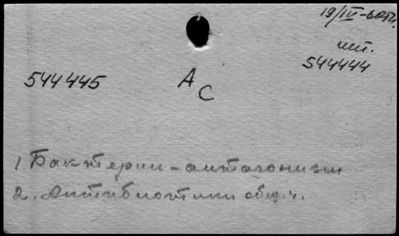 19/IV-60г.
шт.
544444
544445
А
С
1. Бактерии - антагонизм
2. Антибиотики общ. ч.